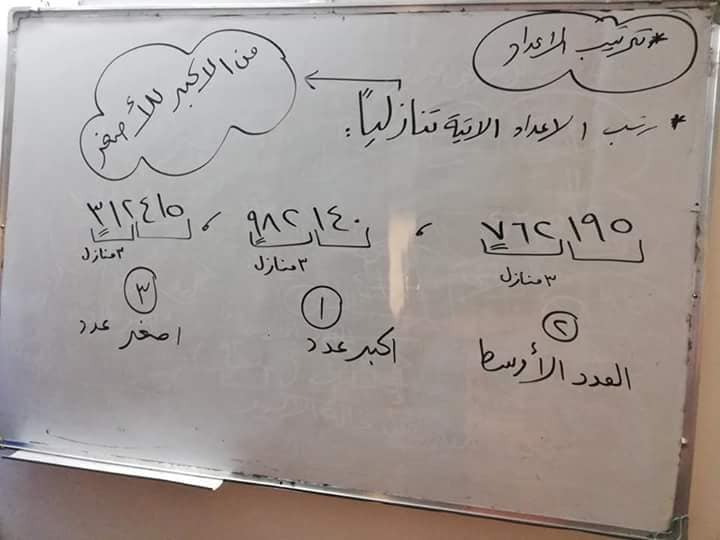 * ترتيب الاعداد
من الاكبر للأصغر
* رتب الاعداد الاتية تنازلياً:
٧٦٢١٩٥ ، ٩٨٢١٤٠ ، ٣١٢٤١٥
٣ منازل ٣ منازل ٣ منازل
٢ ١ ٣
العدد الأوسط اكبر عدد اصغر عدد